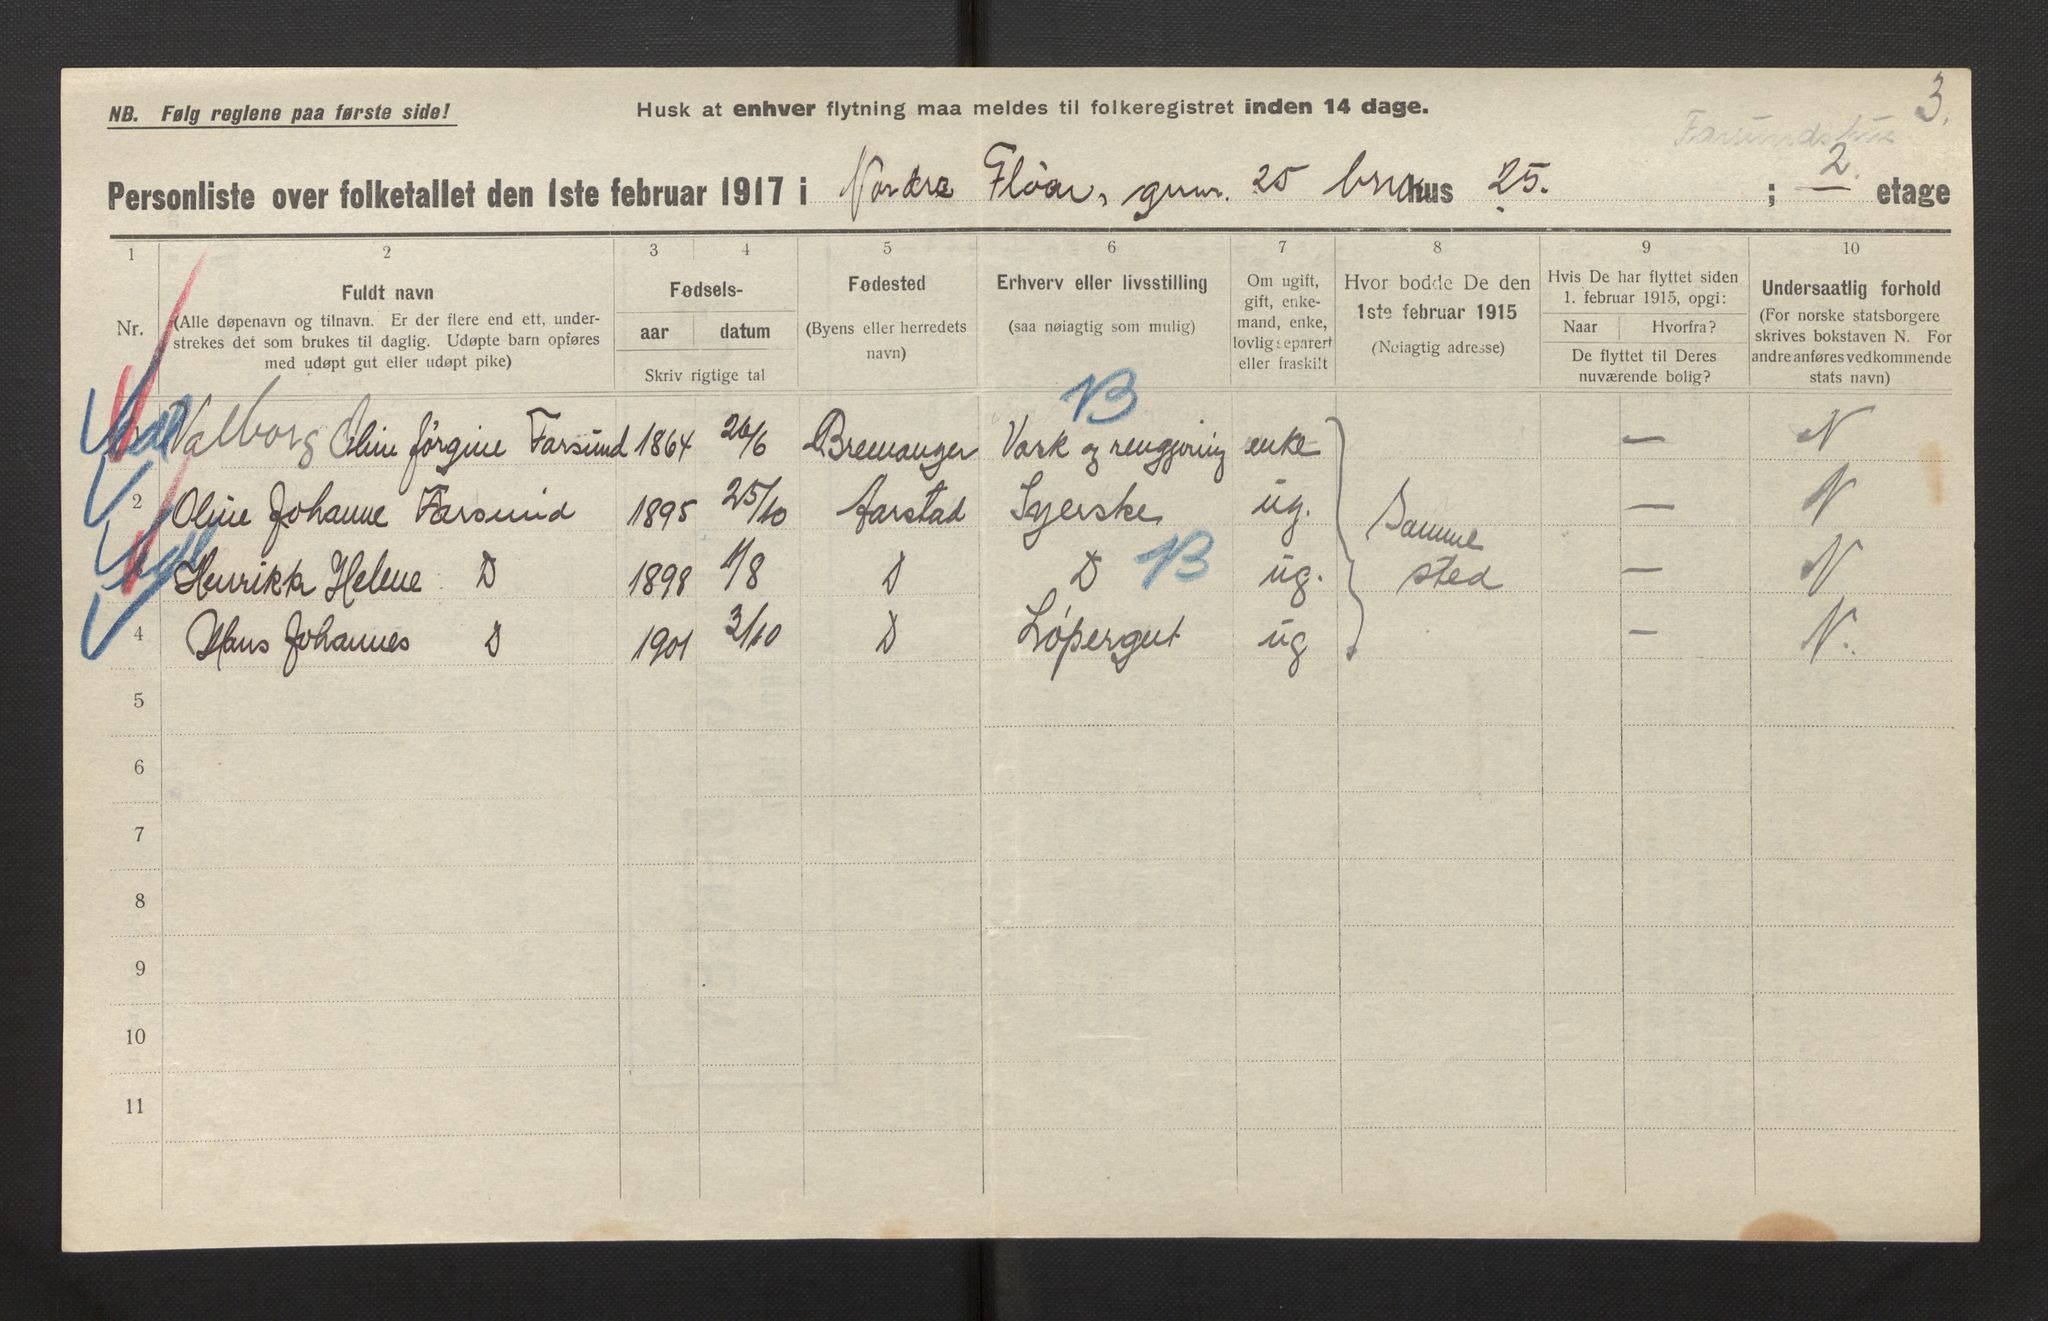 3.
NB. Følg reglene paa første side! Husk at enhver flytning maa meldes til folkeregistret inden 14 dage.
Farsundshus
Personliste over folketallet den 1ste februar 1917 i Nordre Fløen, gnr. 25 brn hus 25. ; 2. etage
1 2 3 4 5 6 7 8 9 10
Nr.
Fuldt navn
(Alle døpenavn og tilnavn. Er der flere end ett, under-
strekes det som brukes til daglig. Udøpte barn opføres
med udøpt gut eller udøpt pike)
Fødsels-
aar datum
Skriv rigtige tal
Fødested
(Byens eller herredets
navn)
Erhverv eller livsstilling
(saa nøiagtig som mulig)
Om ugift,
gift, enke-
mand, enke,
lovlig separert
eller fraskilt
Hvor bodde De den
1ste februar 1915
(Nøiagtig adresse)
Hvis De har flyttet siden
1. februar 1915, opgi:
Naar Hvorfra?
De flyttet til Deres
nuværende bolig?
Undersaatlig forhold
(For norske statsborgere
skrives bokstaven N. For
andre anføres vedkommende
stats navn)
NB
Valborg Oline Jörgine Farsund 1864 26/6 Bremanger Vask og rengjøring enke — N
2 Oline Johanne Farsund 1895 25/10 Aarstad Syerske ug. Samme — N
Henrikka Helene D 1898 1/8 D D NB ug. sted — N
4 Hans Johannes D 1901 3/10 D Löpergut ug — N.
5
6
7
8
9
10
11